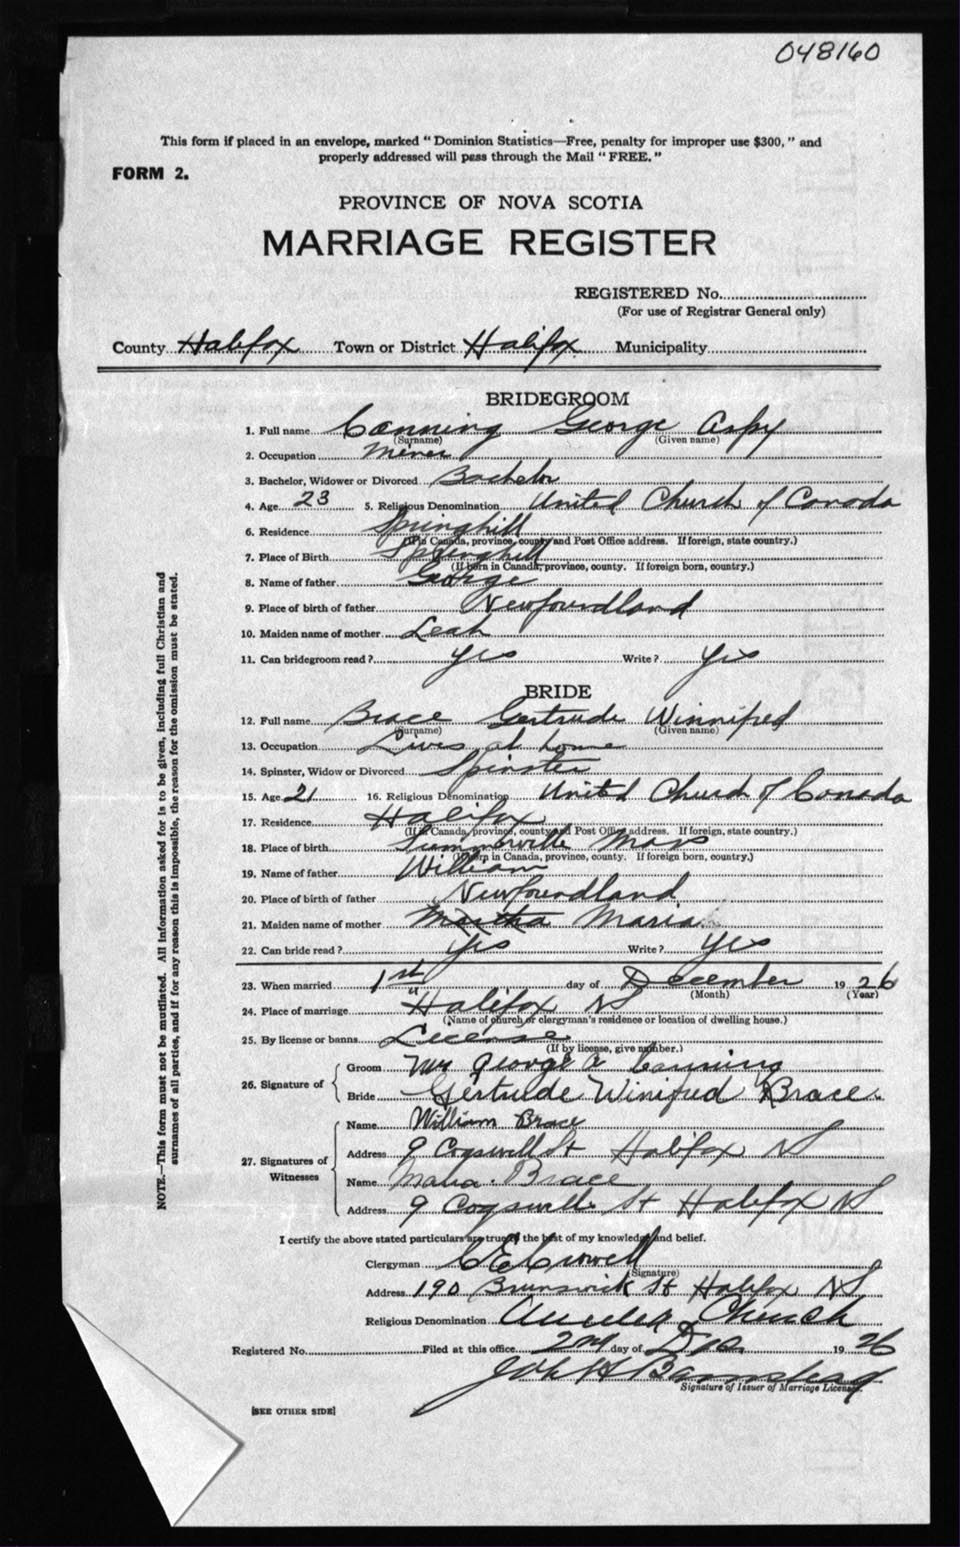 048160
This form if placed in an envelope, marked "Dominion Statistics—Free, penalty for improper use $300," and
properly addressed will pass through the Mail "FREE."
FORM 2.
PROVINCE OF NOVA SCOTIA
MARRIAGE REGISTER
REGISTERED No.
(For use of Registrar General only)
County Halifax Town or District Halifax Municipality
BRIDEGROOM
1. Full name Canning George
(Surname) (Given name)
2. Occupation Miner
3. Bachelor, Widower or Divorced Bachelor
4. Age 23 5. Religious Denomination United Church of Canada
6. Residence Springhill
(If in Canada, province, county and Post Office address. If foreign, state country.)
7. Place of Birth Springhill
(If born in Canada, province, county. If foreign born, country.)
8. Name of father George
9. Place of birth of father Newfoundland
10. Maiden name of mother Leah
11. Can bridegroom read? yes Write? yes
BRIDE
12. Full name Brace Gertrude Winnifred
(Surname) (Given name)
13. Occupation Lives at home
14. Spinster, Widow or Divorced Spinster
15. Age 21 16. Religious Denomination United Church of Canada
17. Residence Halifax
(If in Canada, province, county and Post Office address. If foreign, state country.)
18. Place of birth Summerville Mass
(If born in Canada, province, county. If foreign born, country.)
19. Name of father William
20. Place of birth of father Newfoundland
21. Maiden name of mother Martha Maria
22. Can bride read? yes Write? yes
23. When married 1st day of December 1926
(Month) (Year)
24. Place of marriage Halifax NS
(Name of church or clergyman's residence or location of dwelling house.)
25. By license or banns License
(If by license, give number.)
26. Signature of
Groom Mr George A Canning
Bride Gertrude Winifred Brace.
27. Signatures of Witnesses
Name William Brace
Address 9 Cogswell St Halifax NS
Name Maria Brace
Address 9 Cogswell St Halifax NS
I certify the above stated particulars are true to the best of my knowledge and belief.
Clergyman C E Crowell
(Signature)
Address 190 Brunswick St Halifax NS
Religious Denomination United Church
Registered No. Filed at this office 2nd day of Dec 1926
H Barnstead
Signature of Issuer of Marriage License.
[SEE OTHER SIDE]
NOTE.—This form must not be mutilated. All information asked for is to be given, including full Christian and
surnames of all parties, and if for any reason this is impossible, the reason for the omission must be stated.